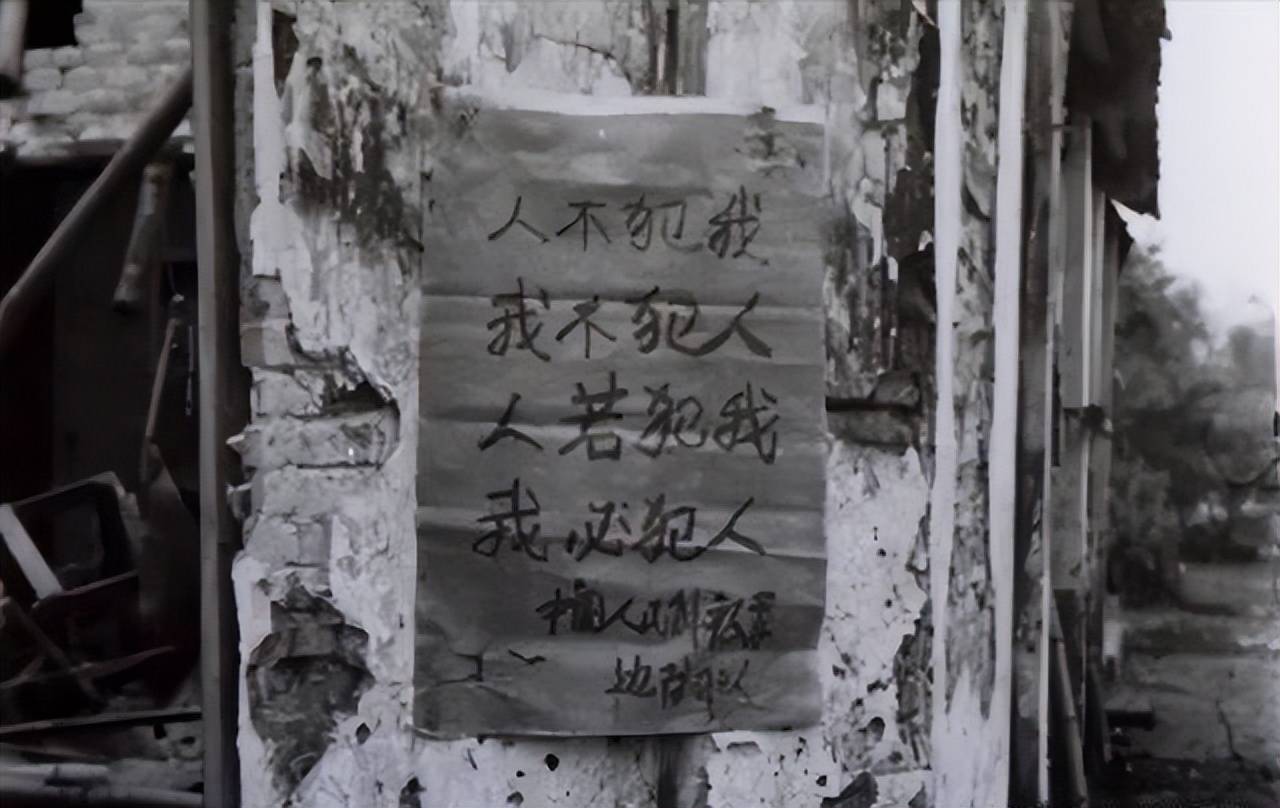 人不犯我
我不犯人
人若犯我
我必犯人
边防部队